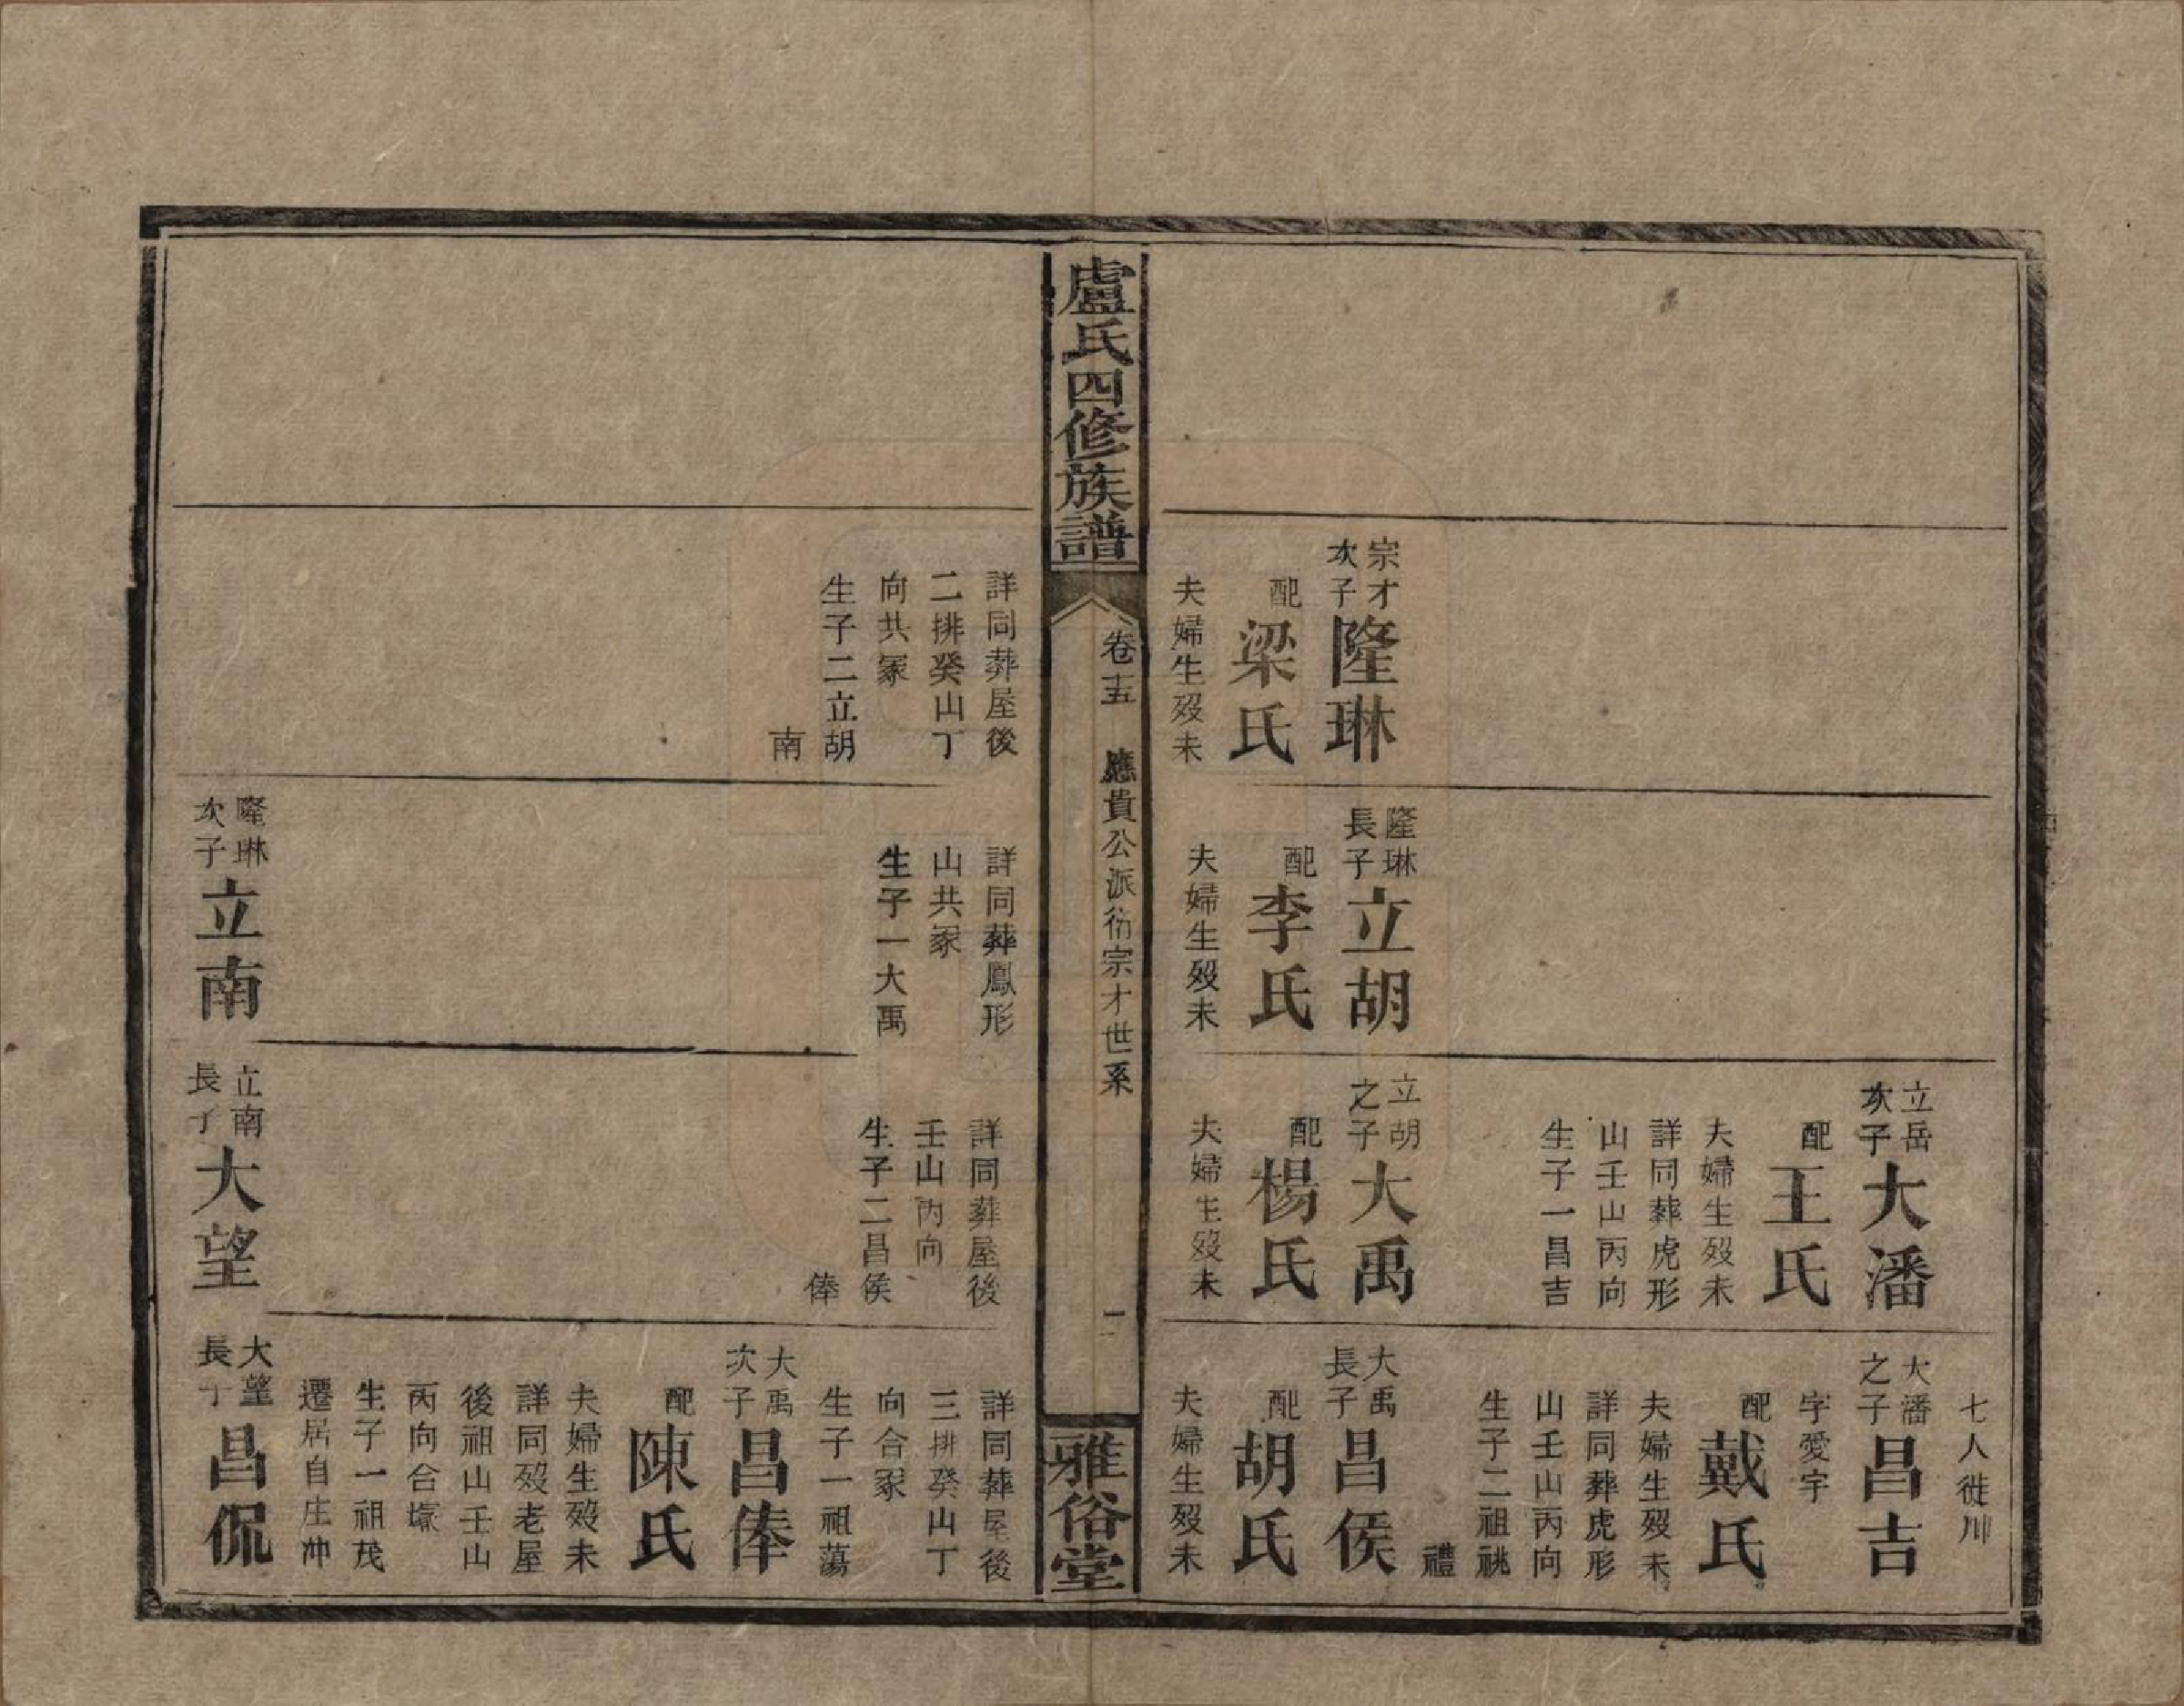 宗才
次子
隆琳
配
梁氏
夫婦生歿未
隆琳
長子
立胡
配
李氏
夫婦生歿未
立岳
次子
大潘
配
王氏
夫婦生歿未
詳同葬虎形
山壬山丙向
生子一昌吉
立胡
之子
大禹
配
楊氏
夫婦生歿未
七人徙川
大潘
之子
昌吉
字愛宇
配
戴氏
夫婦生歿未
詳同葬虎形
山壬山丙向
生子二祖祧
禮
大禹
長子
昌侯
配
胡氏
夫婦生歿未
盧氏四修族譜
卷十五
應貴公派衍宗才世系
雅俗堂
詳同葬屋後
二排癸山丁
向共冢
生子二立胡
南
詳同葬鳳形
山共冢
生子一大禹
隆琳
次子
立南
詳同葬屋後
壬山丙向
生子二昌侯
俸
立南
長子
大望
詳同葬屋後
三排癸山丁
向合冢
生子一祖蕩
大禹
次子
昌俸
配
陳氏
夫婦生歿未
詳同歿老屋
後祖山壬山
丙向合塚
生子一祖茂
遷居自庄冲
大望
長子
昌侃